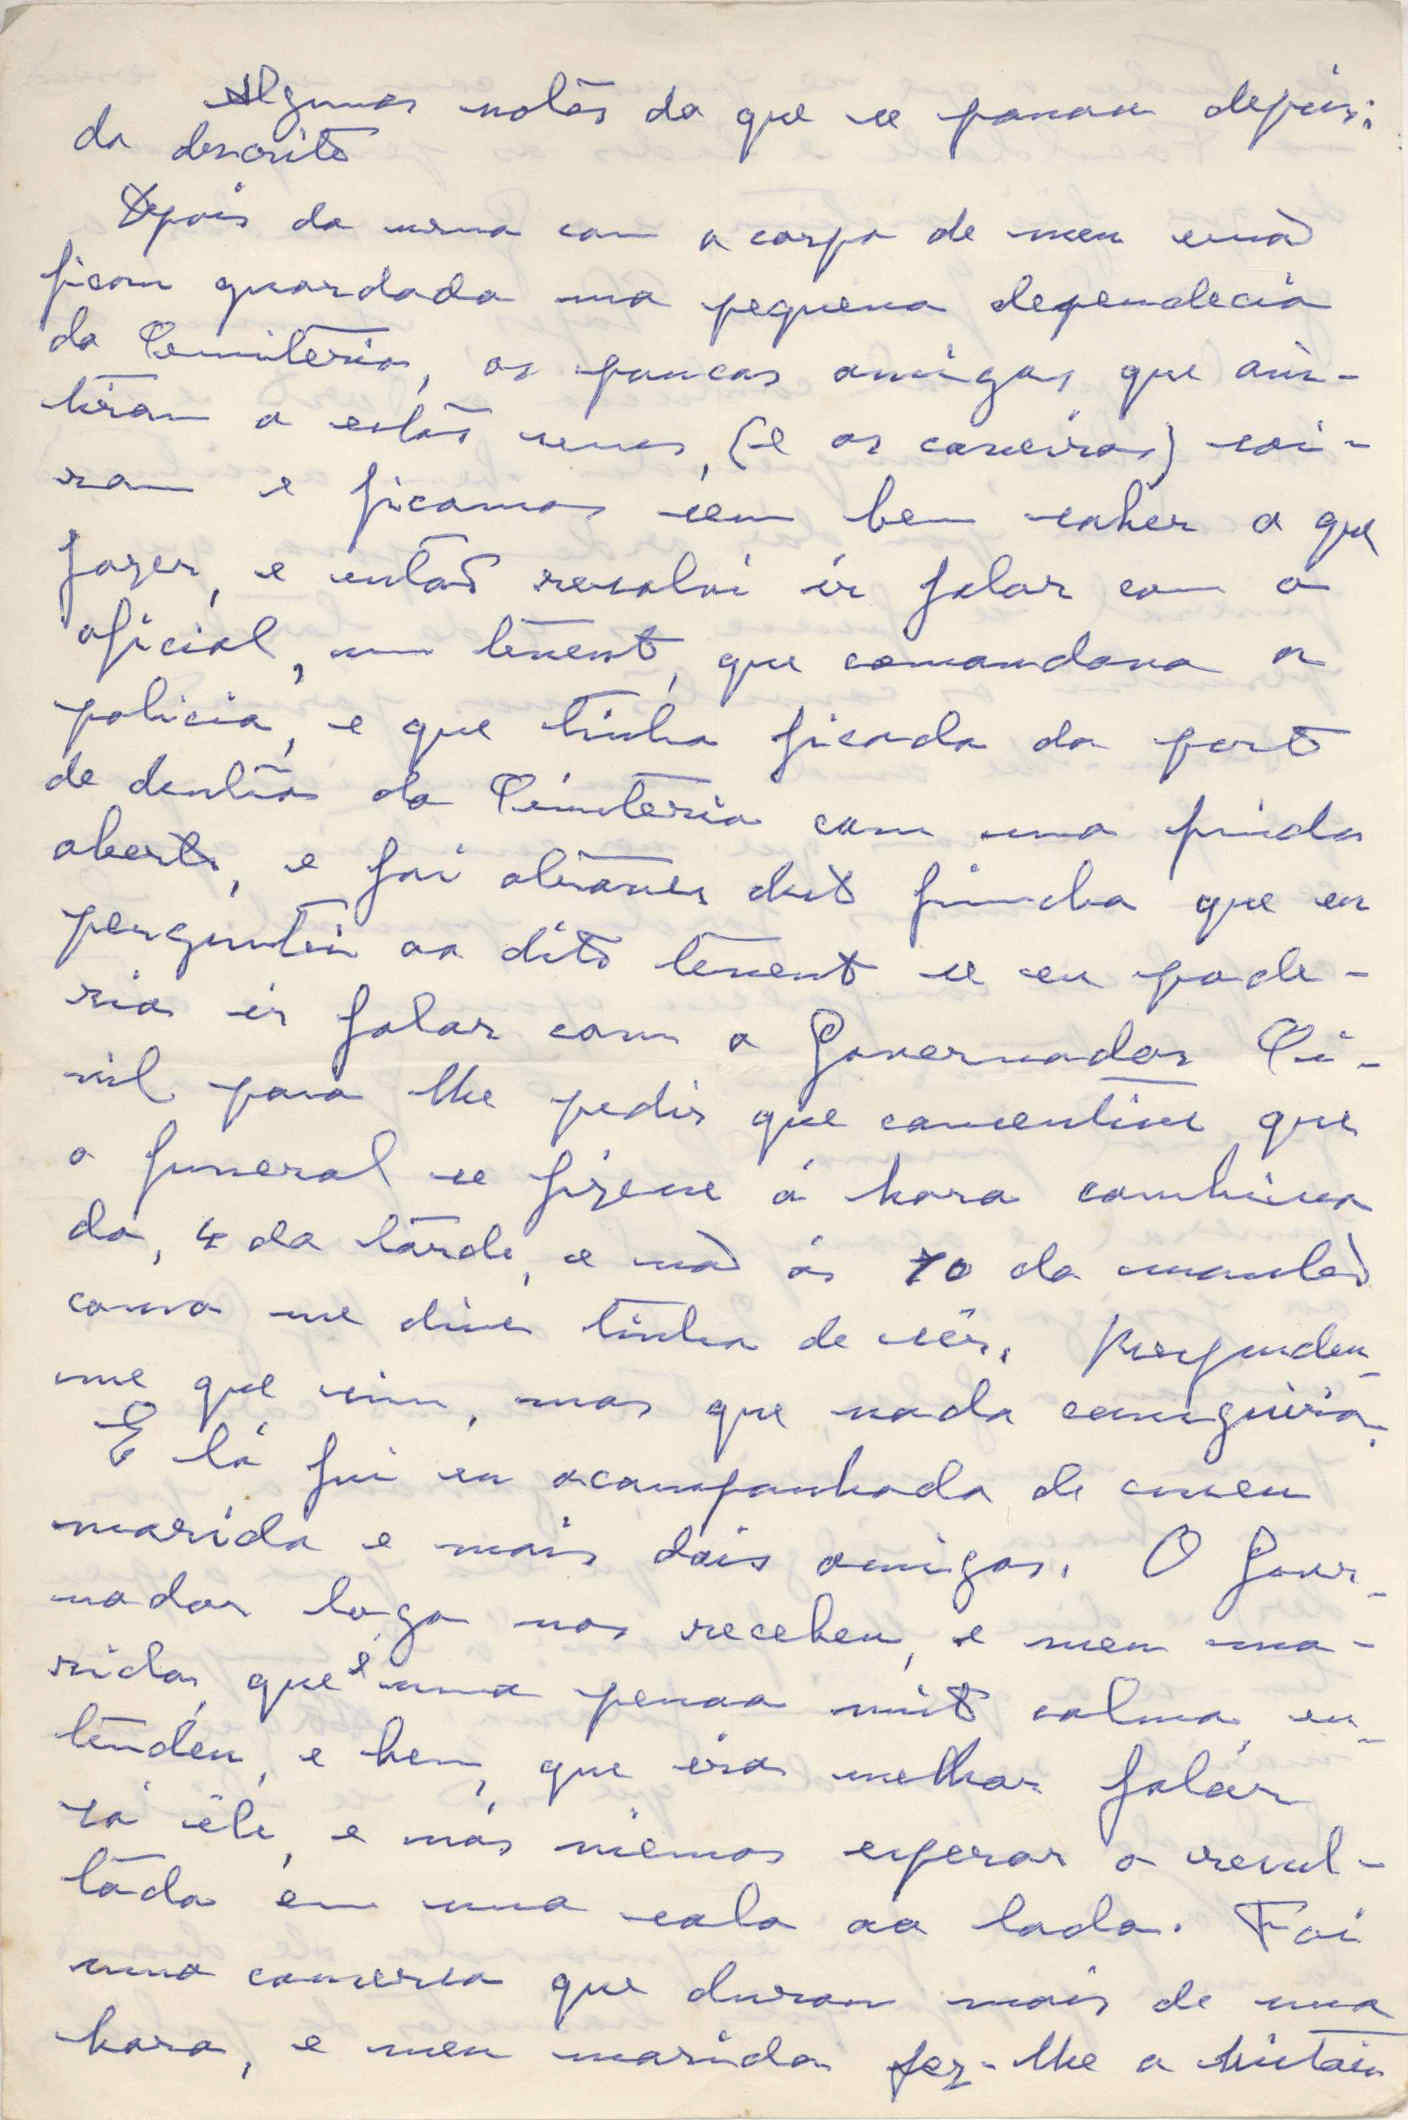 Algumas notas do que se passou depois:
do descrito
Depois da urna com o corpo de meu irmão
ficou guardada na pequena dependecia
do Cemiterio, os poucos amigos que assis-
tiram a estas cenas, (e os coveiros) saí-
ram e ficamos sem bem saber o que
fazer, e então resolvi ir falar com o
oficial, um tenente, que comandava a
policia, e que tinha ficado da parte
de dentro do Cimiterio com uma frincha
aberta, e foi atravez desta frincha que eu
perguntei ao dito tenente se eu pode-
ria ir falar com o Governador Ci-
vil para lhe pedir que consentisse que
o funeral se fizesse á hora combina
da, 4 da tarde, e não ás 10 da manhã
como me disse tinha de sêr. Respondeu-
me que sim, mas que nada conseguiria.
E lá fui eu acompanhada de meu
marido e mais dois amigos. O Gover-
nador logo nos recebeu, e meu ma-
rido, que é uma pessoa muito calma, en-
tendeu, e bem, que era melhor falar
só êle, e nós viemos esperar o resul-
tado em uma sala ao lado. Foi
uma conversa que durou mais de uma
hora, e meu marido fez-lhe a historia